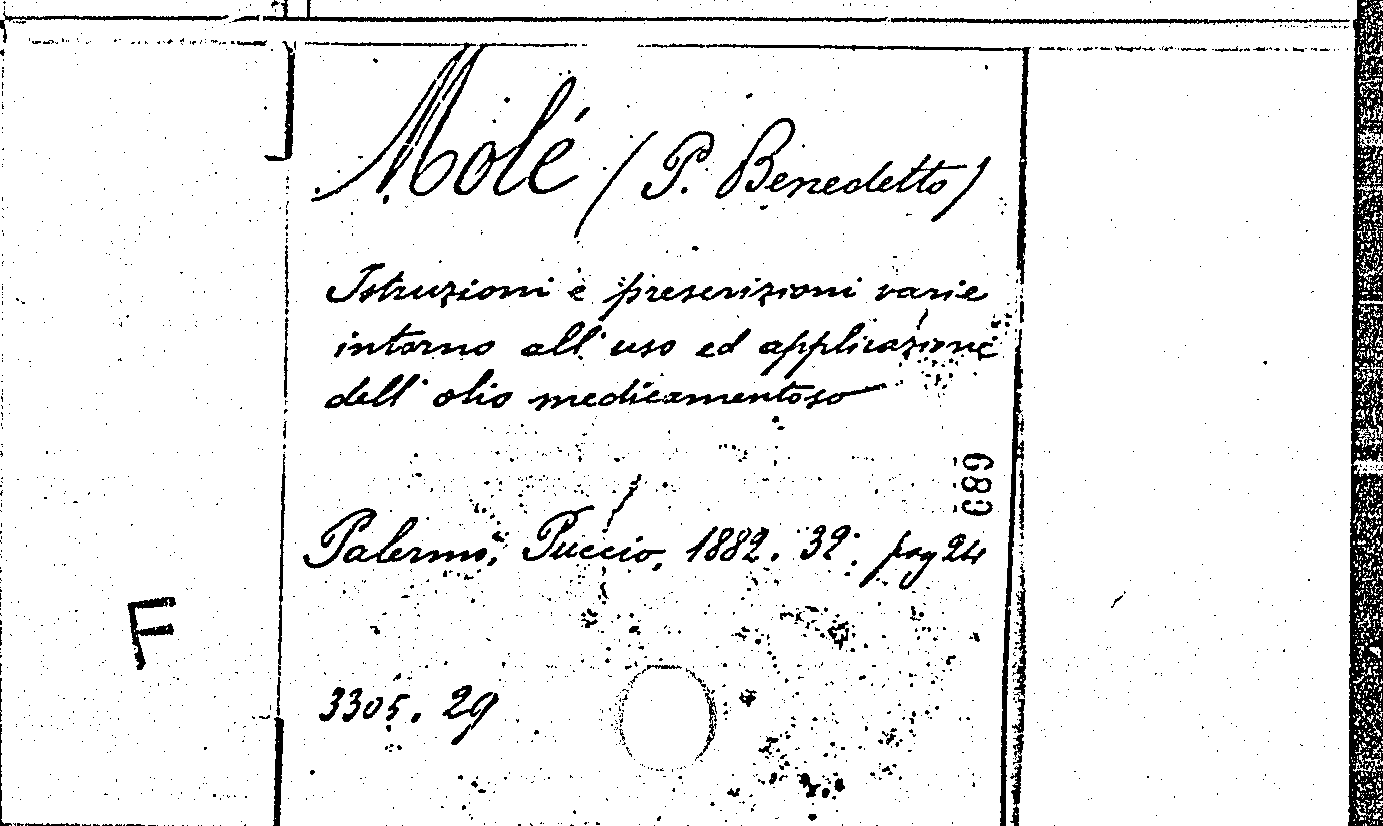 Molé (P. Benedetto)
Istruzioni e prescrizioni varie
intorno all'uso ed applicazione
dell'olio medicamentoso
689
Palermo, Puccio, 1882. 32: pag 24
F
3305. 29